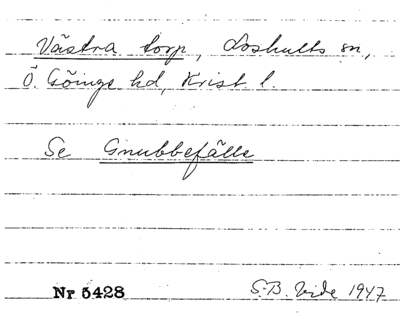 Västra torp, Loshults sn,
Ö. Göinge hd, Krist. l.
Se Gnubbefälle
Nr 5428 S.B. Vide 1947